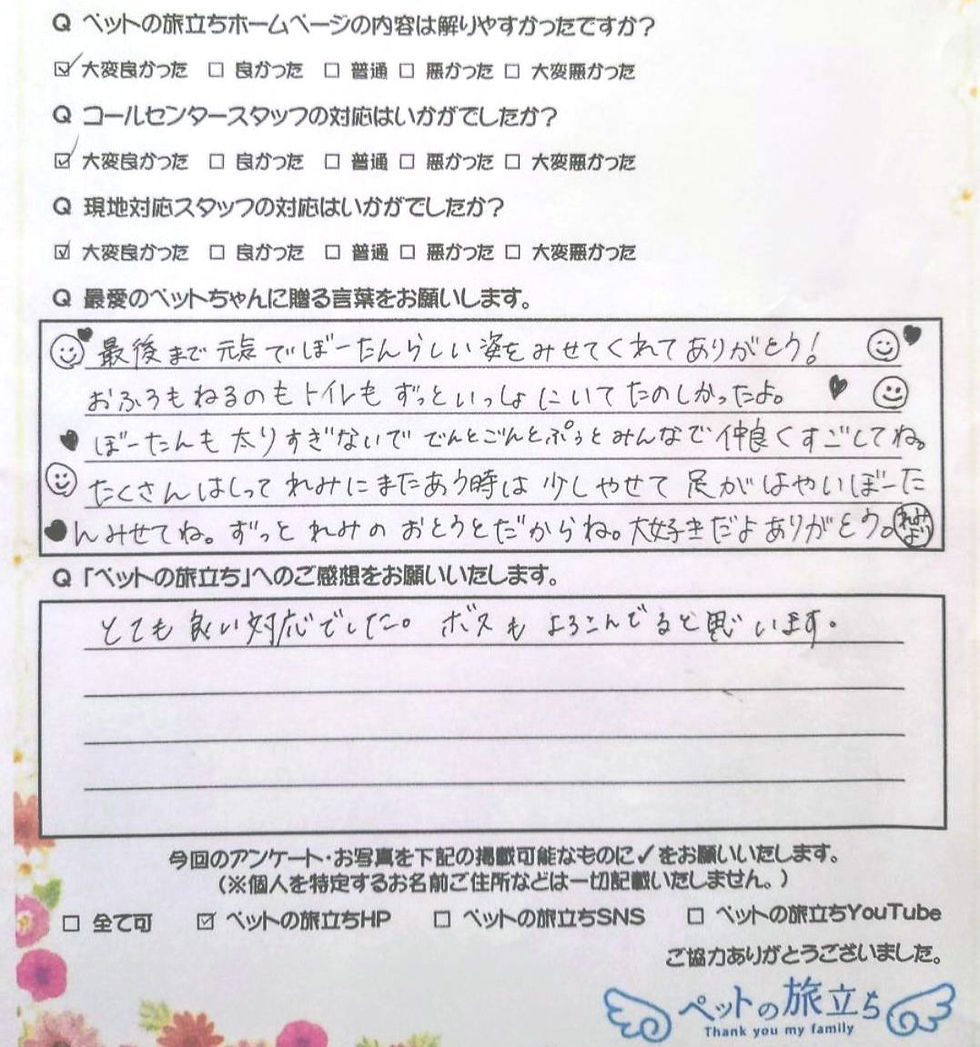 Q ペットの旅立ちホームページの内容は解りやすかったですか?
☑ 大変良かった □ 良かった □ 普通 □ 悪かった □ 大変悪かった
Q コールセンタースタッフの対応はいかがでしたか?
☑ 大変良かった □ 良かった □ 普通 □ 悪かった □ 大変悪かった
Q 現地対応スタッフの対応はいかがでしたか?
☑ 大変良かった □ 良かった □ 普通 □ 悪かった □ 大変悪かった
Q 最愛のペットちゃんに贈る言葉をお願いします。
最後まで元気でぼーたんらしい姿をみせてくれてありがとう!
おふろもねるのもトイレもずっといっしょにいてたのしかったよ。
ぼーたんも太りすぎないででんとごんとぷぅとみんなで仲良くすごしてね。
たくさんはしってれみにまたあう時は少しやせて足がはやいぼーた
んみせてね。ずっとれみのおとうとだからね。大好きだよありがとう。れみより
Q 「ペットの旅立ち」へのご感想をお願いいたします。
とても良い対応でした。ボスもよろこんでると思います。
今回のアンケート・お写真を下記の掲載可能なものに✓をお願いいたします。
(※個人を特定するお名前ご住所などは一切記載いたしません。)
□ 全て可 ☑ ペットの旅立ちHP □ ペットの旅立ちSNS □ ペットの旅立ちYouTube
ご協力ありがとうございました。
ペットの旅立ち
Thank you my family